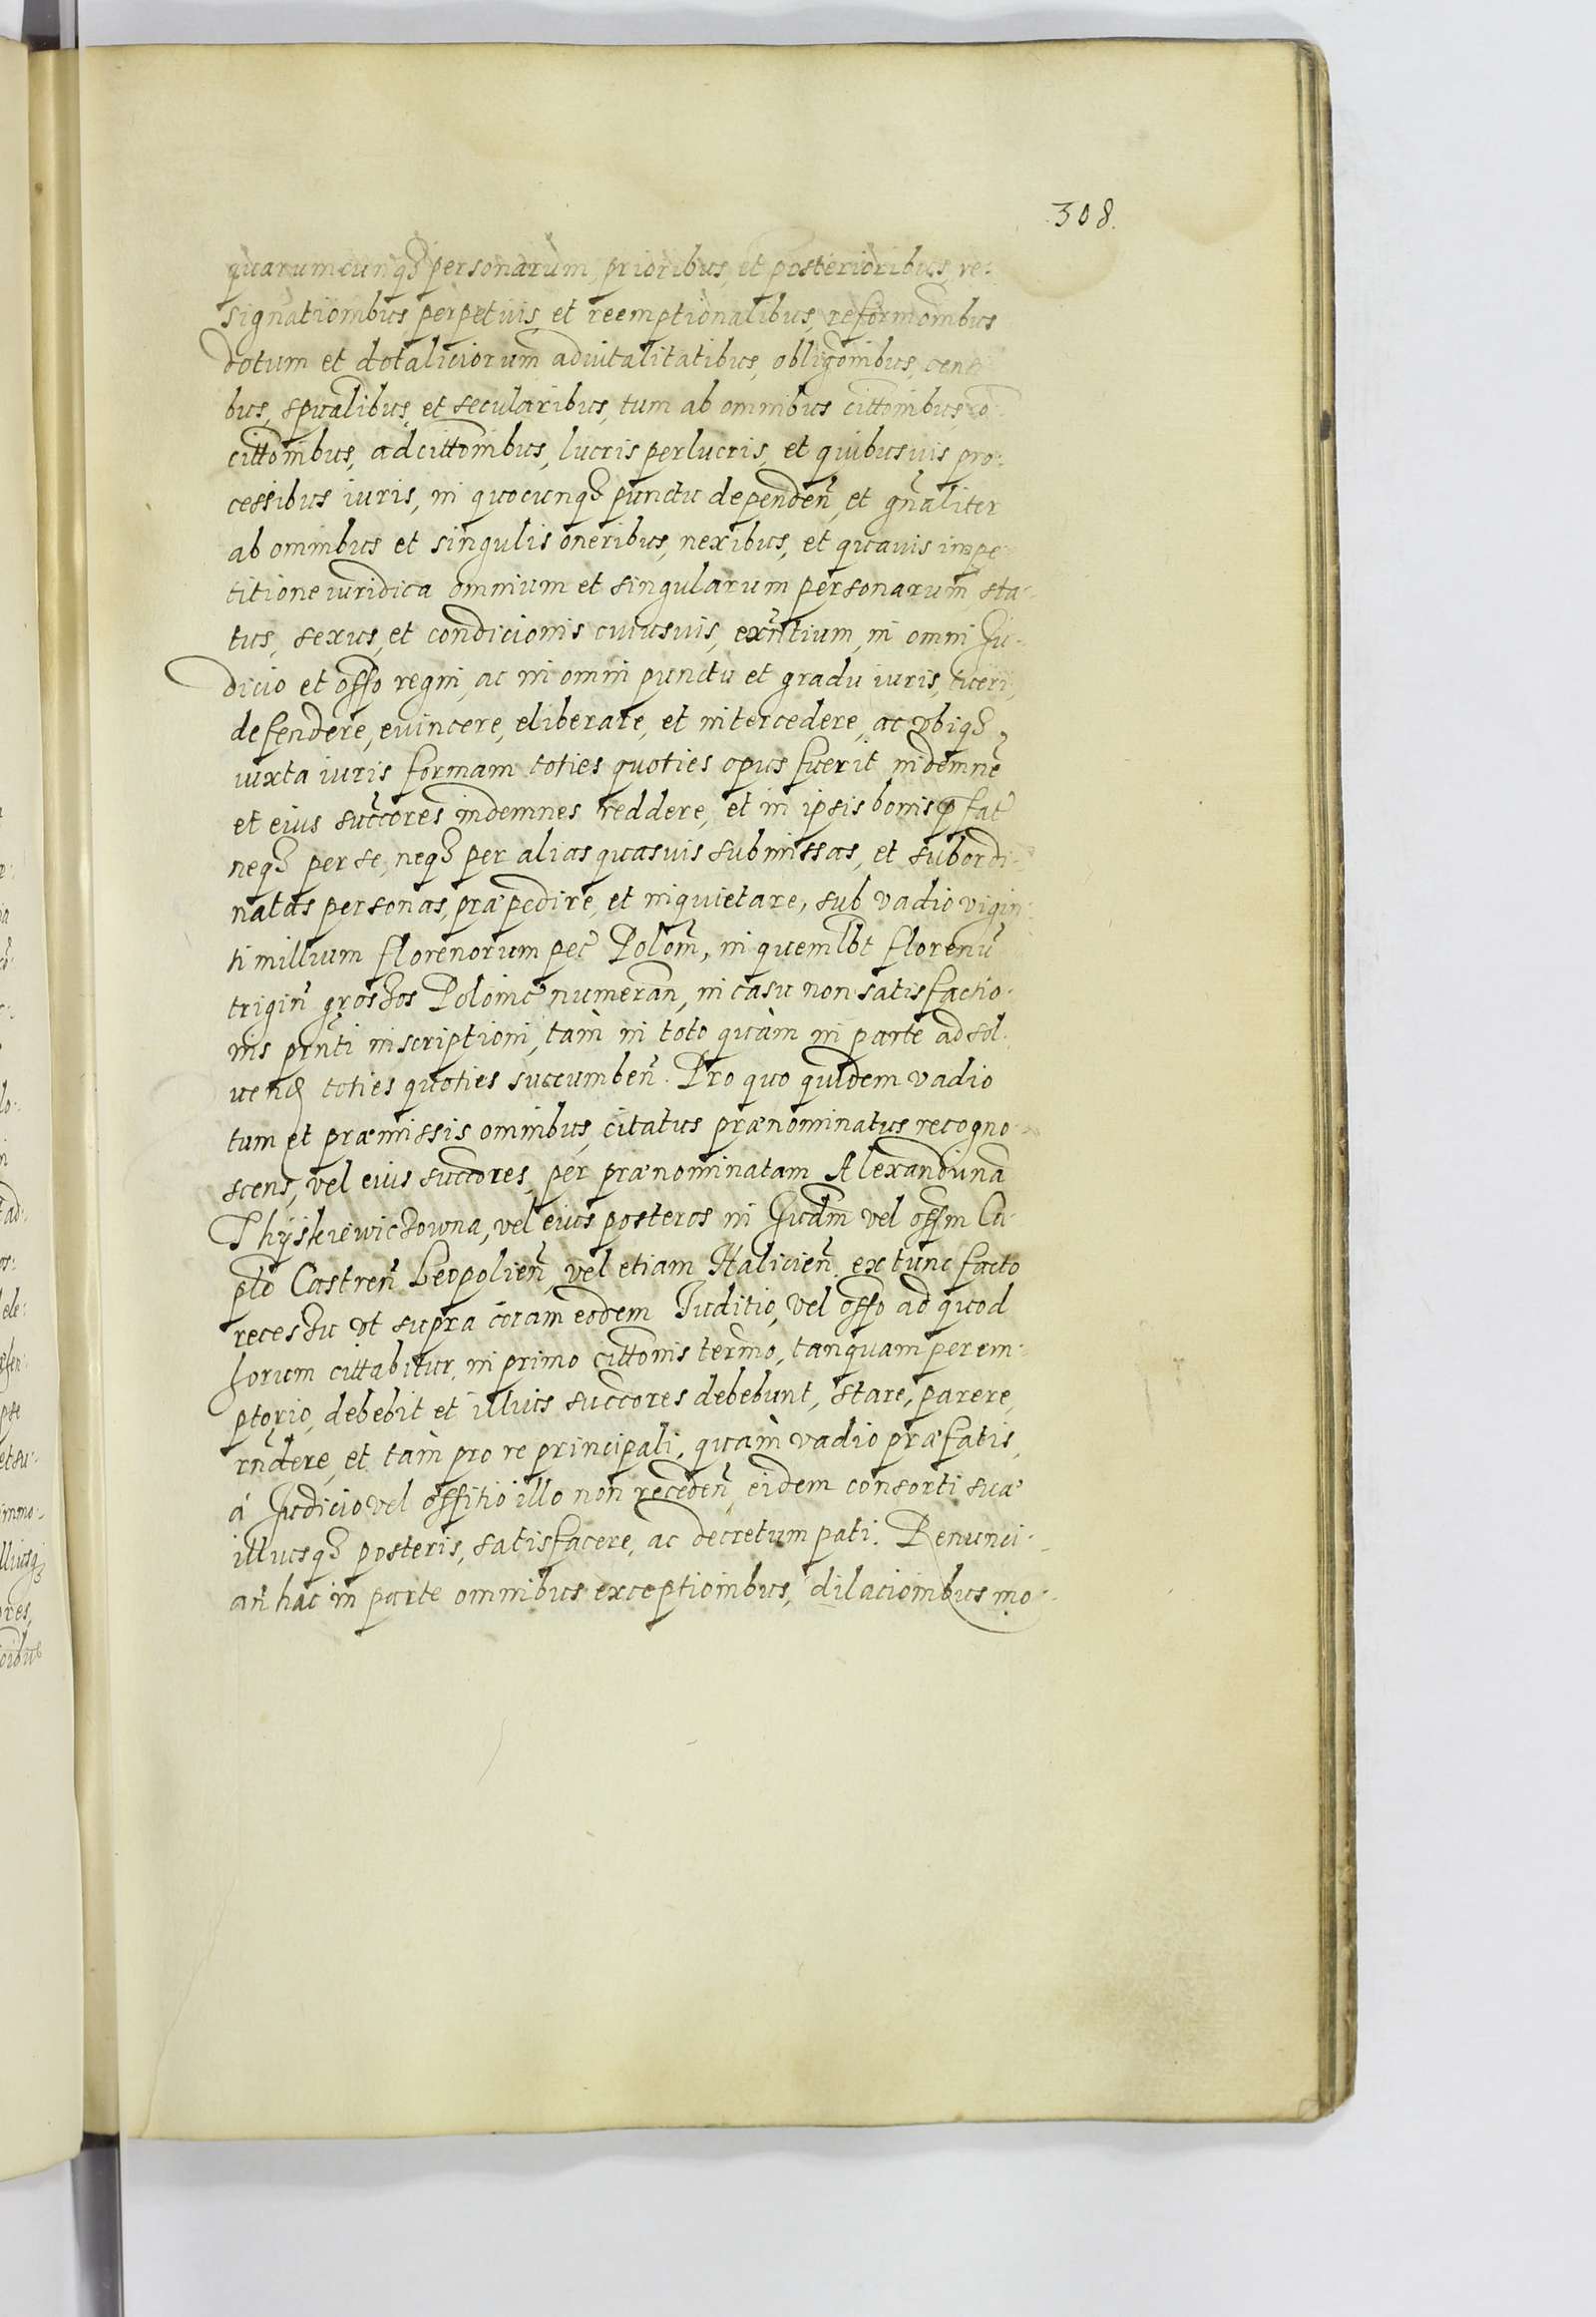 308.
quarumcunq₃ personarum prioribus, et posterioribus, re:
signationibus perpetuis, et reemptionalibus, reformōnibus
dotum et dotaliciorum aduitalitatibus, obligōnibus,
bus, spūalibus, et secularibus, tum ab omnibus cittōnibus,
cittōnibus, adcittōnibus, lucris perlucris, et quibusuis pro:
cessibus iuris, in quocunq₃ punctu dependen̄, et gn̄aliter
ab omnibus et singulis oneribus, nexibus, et quauis impe-
titione iuridica omnium et singularum personarum, sta-
tus, sexus, et condicionis cuiusuis, exn̄tium, in omni Ju-
dicio et offo regni, ac in omni punctu et gradu iuris, tueri,
defendere, euincere, eliberare, et intercedere, ac vbiq₃,
iuxta iuris formam toties quoties opus fuerit indemnē
et eius succ̄ores indemnes reddere, et in ipsis bonis p̄fat
neq₃ per se, neq₃ per alias quasuis submissas, et subordi-
natas personas, præpedire, et inquietare, sub vadio vigin:
ti millium florenorum pec̄ Polon̄, in quemlbt florenū
trigin̄ groszos Polonic̄ numeran̄, in casu non satisfactio-
nis prn̄ti inscriptioni, tam̀ in toto quàm in parte adsol-
uend toties quoties succumben̄. Pro quo quidem vadio
tum et præmissis omnibus, citatus prænominatus recogno-
scens, vel eius succ̄ores, per prænominatam Alexandrinā
Thÿskiewiczowna, vel eius posteros in Judm̄ vel offm̄ Ca-
pld̄ Castren̄ Leopolien̄, vel etiam Halicien̄, ex tunc facto
recessu vt supra coram eodem Juditio, vel offo ad quod
horum cittabitur, in primo cittōnis termō, tanquam perem-
ptorio, debebit et illius succ̄ores debebunt, stare, parere,
rn̄dere, et tàm pro re principali, quàm vadio præfatis,
á Judicio vel offitio illo non receden̄, eidem consorti suæ
illiusq₃ posteris, satisfacere, ac decretum pati. Renunci-
an̄ hac in parte omnibus exceptionibus, dilacionibus mo-